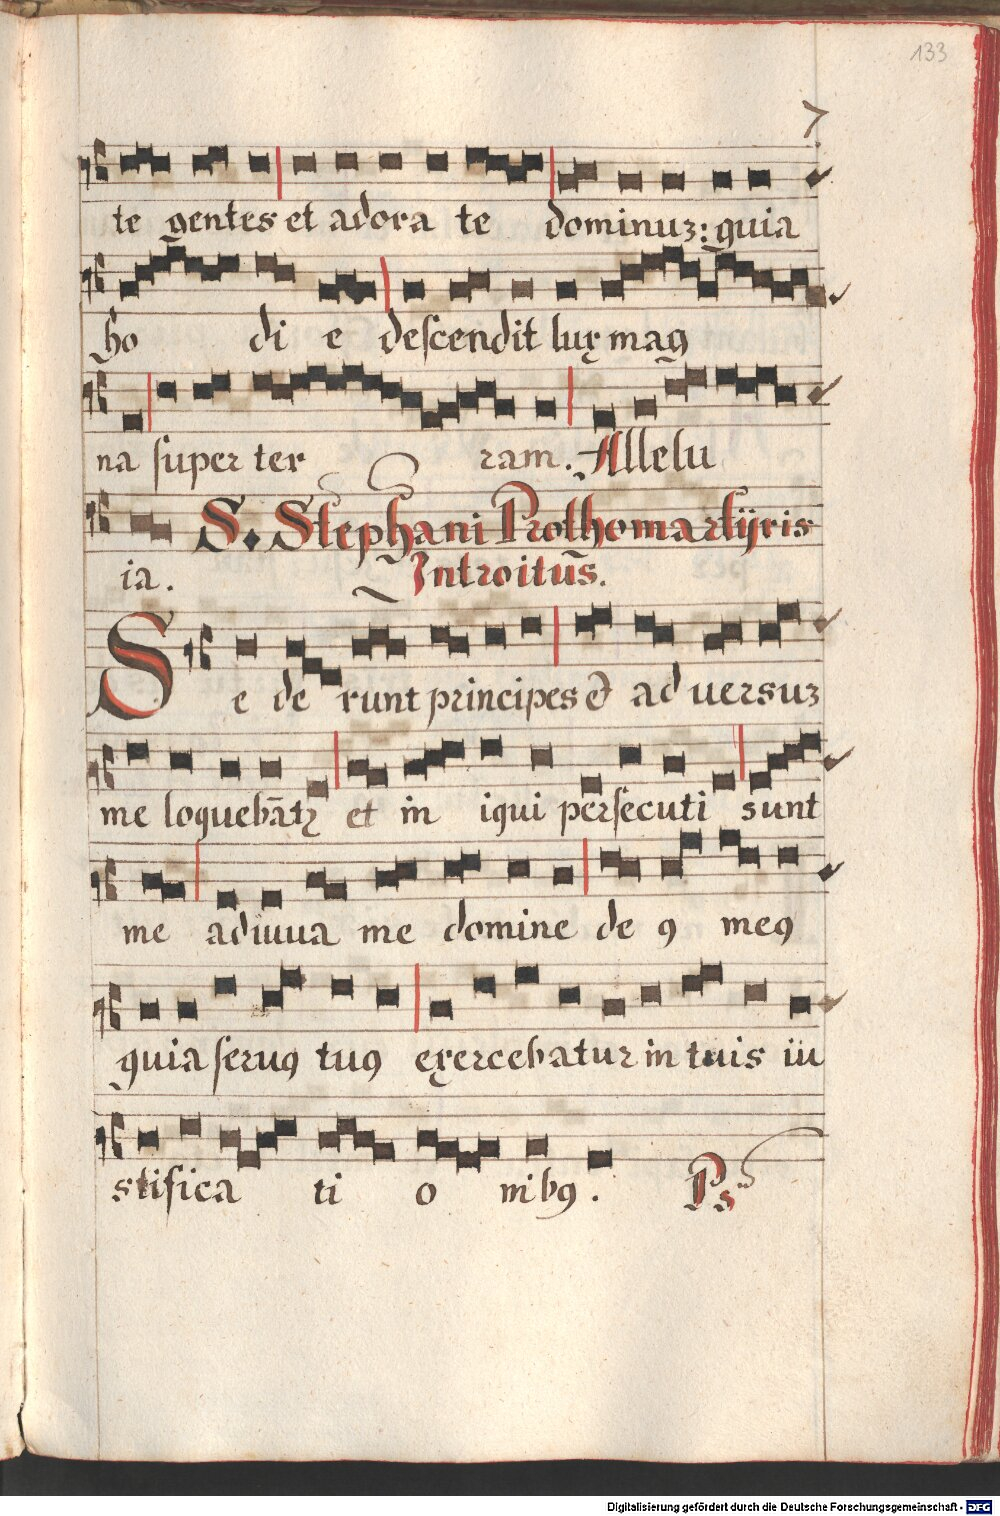 133
7
te gentes et adora te dominuz: quia
ho di e descendit lux magꝯ
na super ter ram. Allelu
S. Stephani Prothomartijris
ia. Introitus.
Se de runt principes et̄ ad uersuz
me loquebātꝛ et in iqui persecuti sunt
me adiuua me domine de ꝯ meꝯ
quia seruꝯ tuꝯ exercebatur in tuis iu
stifica ti o nibꝯ. Ps
Digitalisierung gefördert durch die Deutsche Forschungsgemeinschaft - DFG